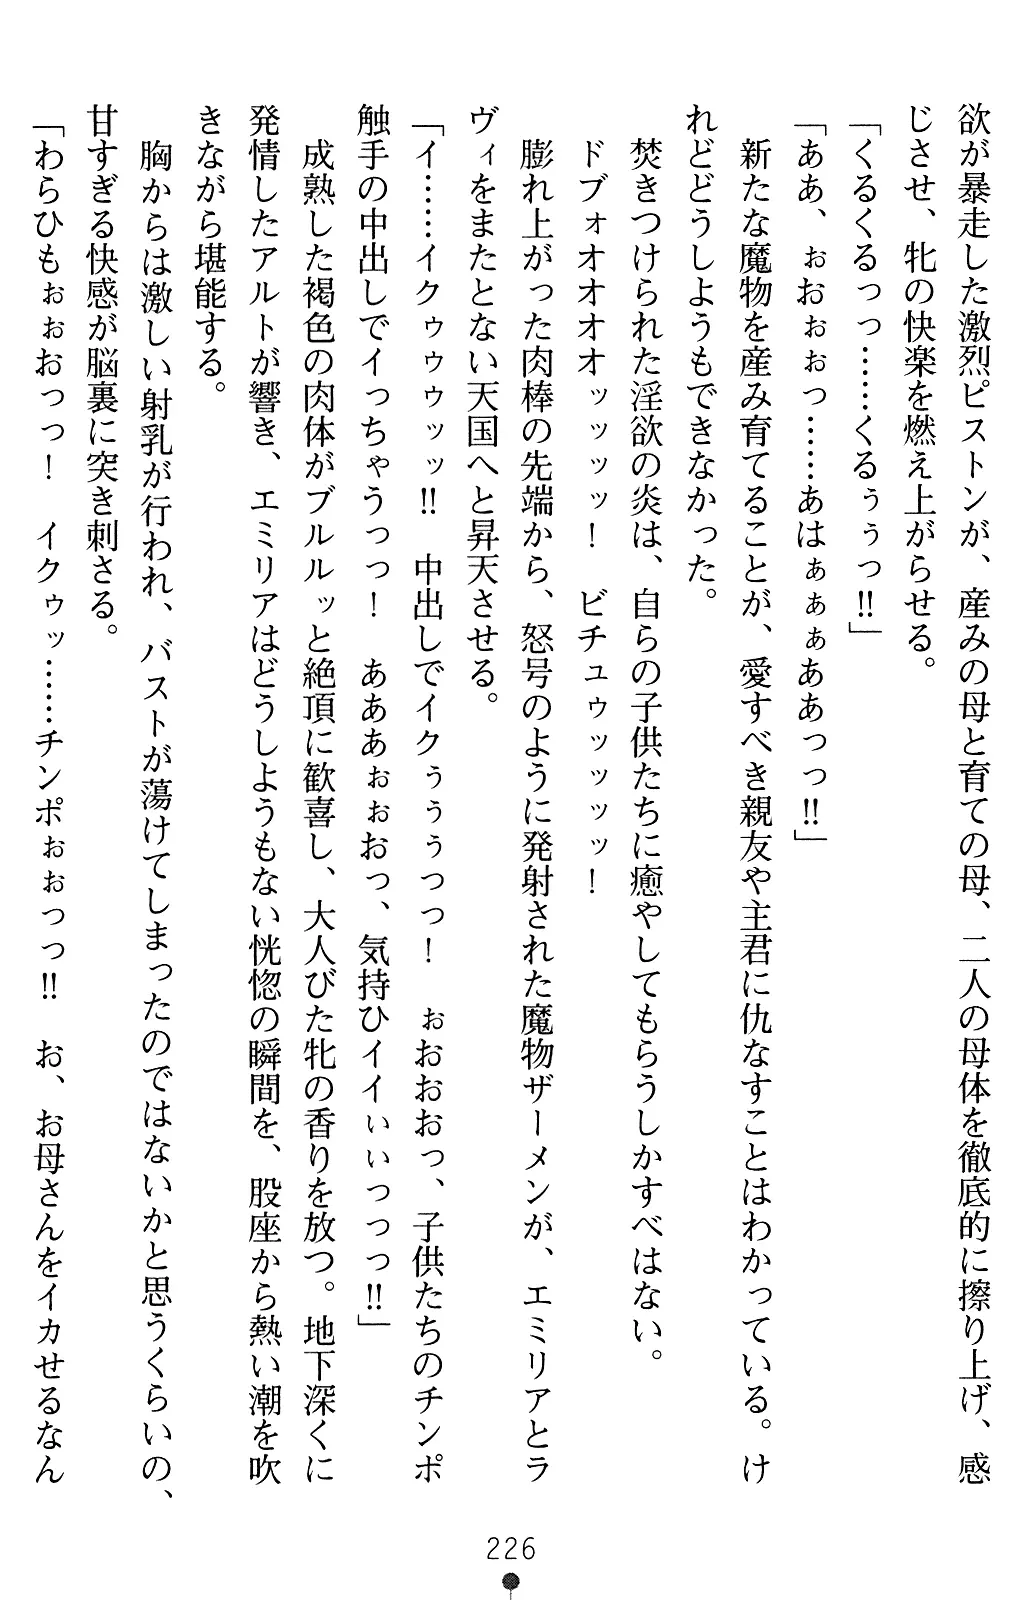 欲が暴走した激烈ピストンが、産みの母と育ての母、二人の母体を徹底的に擦り上げ、感
じさせ、牝の快楽を燃え上がらせる。
「くるくるっっ……くるぅぅっ‼」
「ああ、ぉおぉぉっ……あはぁぁぁああっっ‼」
新たな魔物を産み育てることが、愛すべき親友や主君に仇なすことはわかっている。け
れどどうしようもできなかった。
焚きつけられた淫欲の炎は、自らの子供たちに癒やしてもらうしかすべはない。
ドブォオオオオッッッッ！　ビチュゥッッッッ！
膨れ上がった肉棒の先端から、怒号のように発射された魔物ザーメンが、エミリアとラ
ヴィをまたとない天国へと昇天させる。
「イ……イクゥゥゥッッ‼　中出しでイクぅぅぅっっ！　ぉおおおっ、子供たちのチンポ
触手の中出しでイっちゃうっっ！　あああぉぉおっ、気持ひイイぃぃっっっ‼」
成熟した褐色の肉体がブルルッと絶頂に歓喜し、大人びた牝の香りを放つ。地下深くに
発情したアルトが響き、エミリアはどうしようもない恍惚の瞬間を、股座から熱い潮を吹
きながら堪能する。
胸からは激しい射乳が行われ、バストが蕩けてしまったのではないかと思うくらいの、
甘すぎる快感が脳裏に突き刺さる。
「わらひもぉぉおっっ！　イクゥッ……チンポぉぉっっ‼　お、お母さんをイカせるなん
226